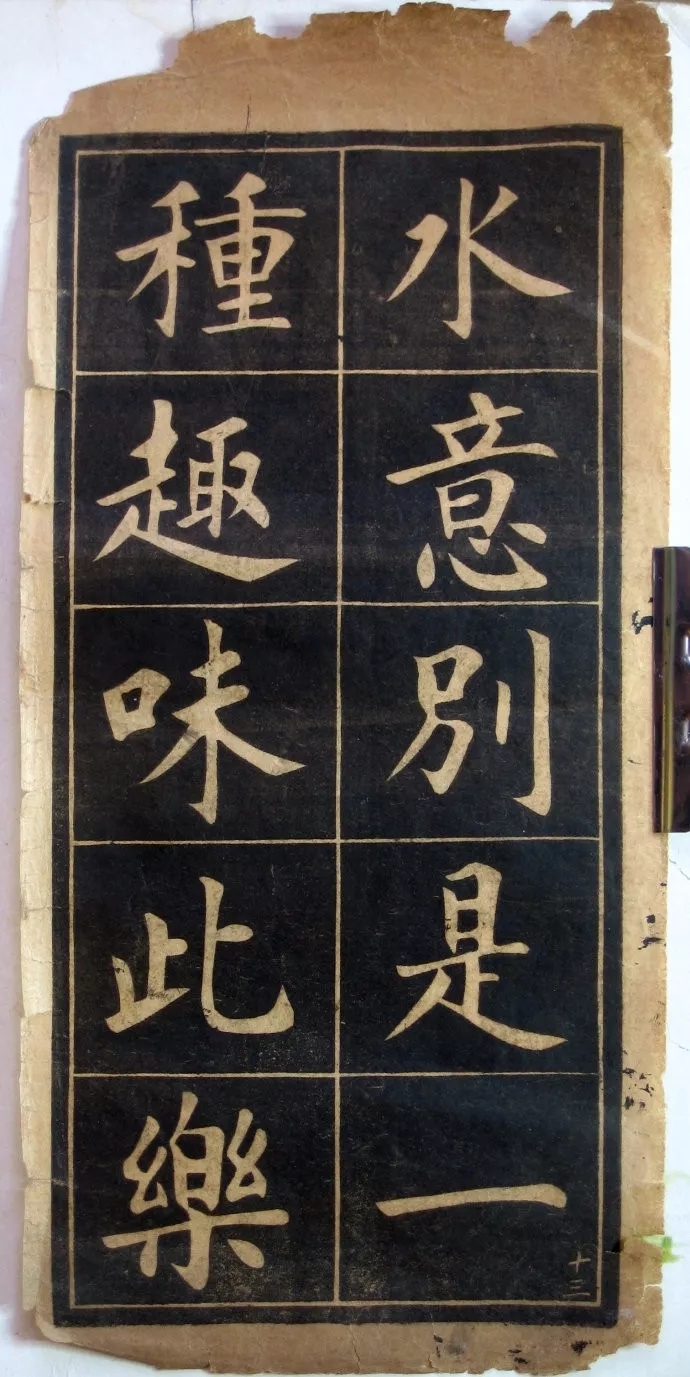 水意別是一
種趣味此樂
十三